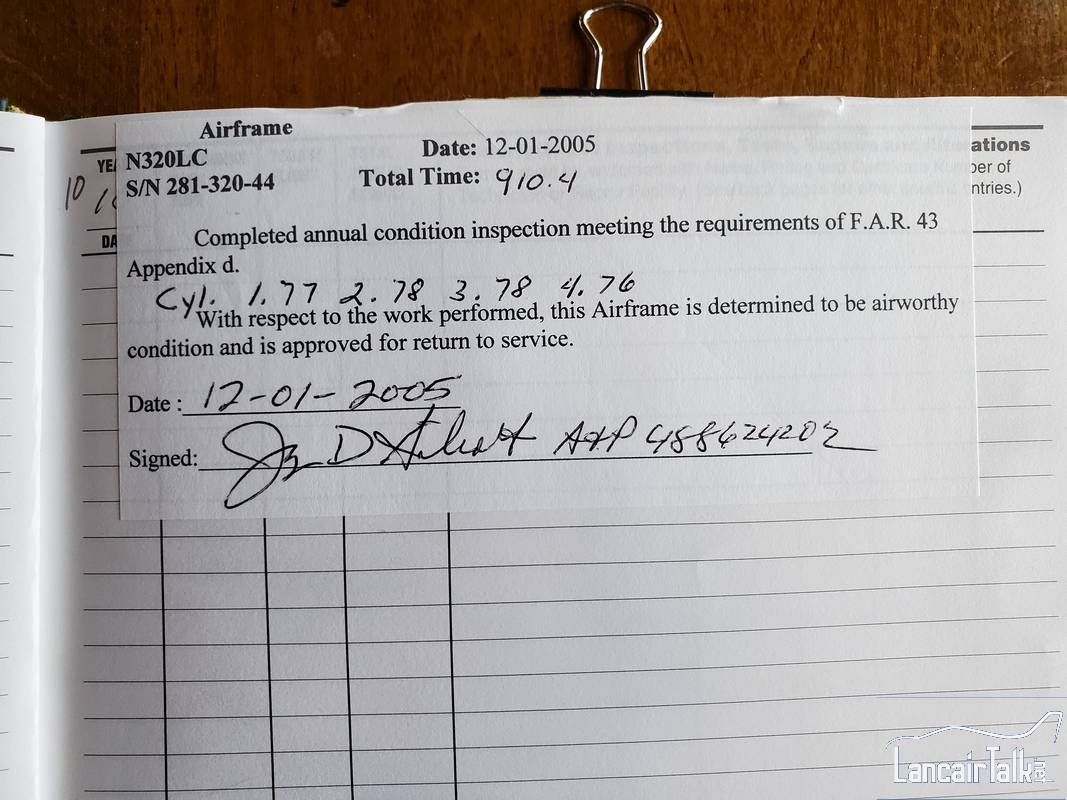 Airframe
YEA N320LC Date: 12-01-2005 ations
S/N 281-320-44 Total Time: 910.4 ber of
10 ntries.)
DA Completed annual condition inspection meeting the requirements of F.A.R. 43
Appendix d.
Cyl. 1.77 2.78 3.78 4.76
With respect to the work performed, this Airframe is determined to be airworthy
condition and is approved for return to service.
Date : 12-01-2005
Signed: D A&P 488624202
LancairTalk.net